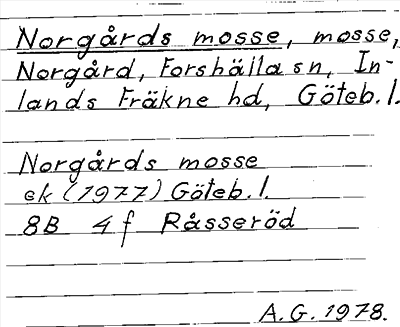 Norgårds mosse, mosse,
Norgård, Forshälla sn, In-
lands Fräkne hd, Göteb. l.
Norgårds mosse
ek (1977) Göteb. l.
8B 4f Råsseröd
A.G. 1978.